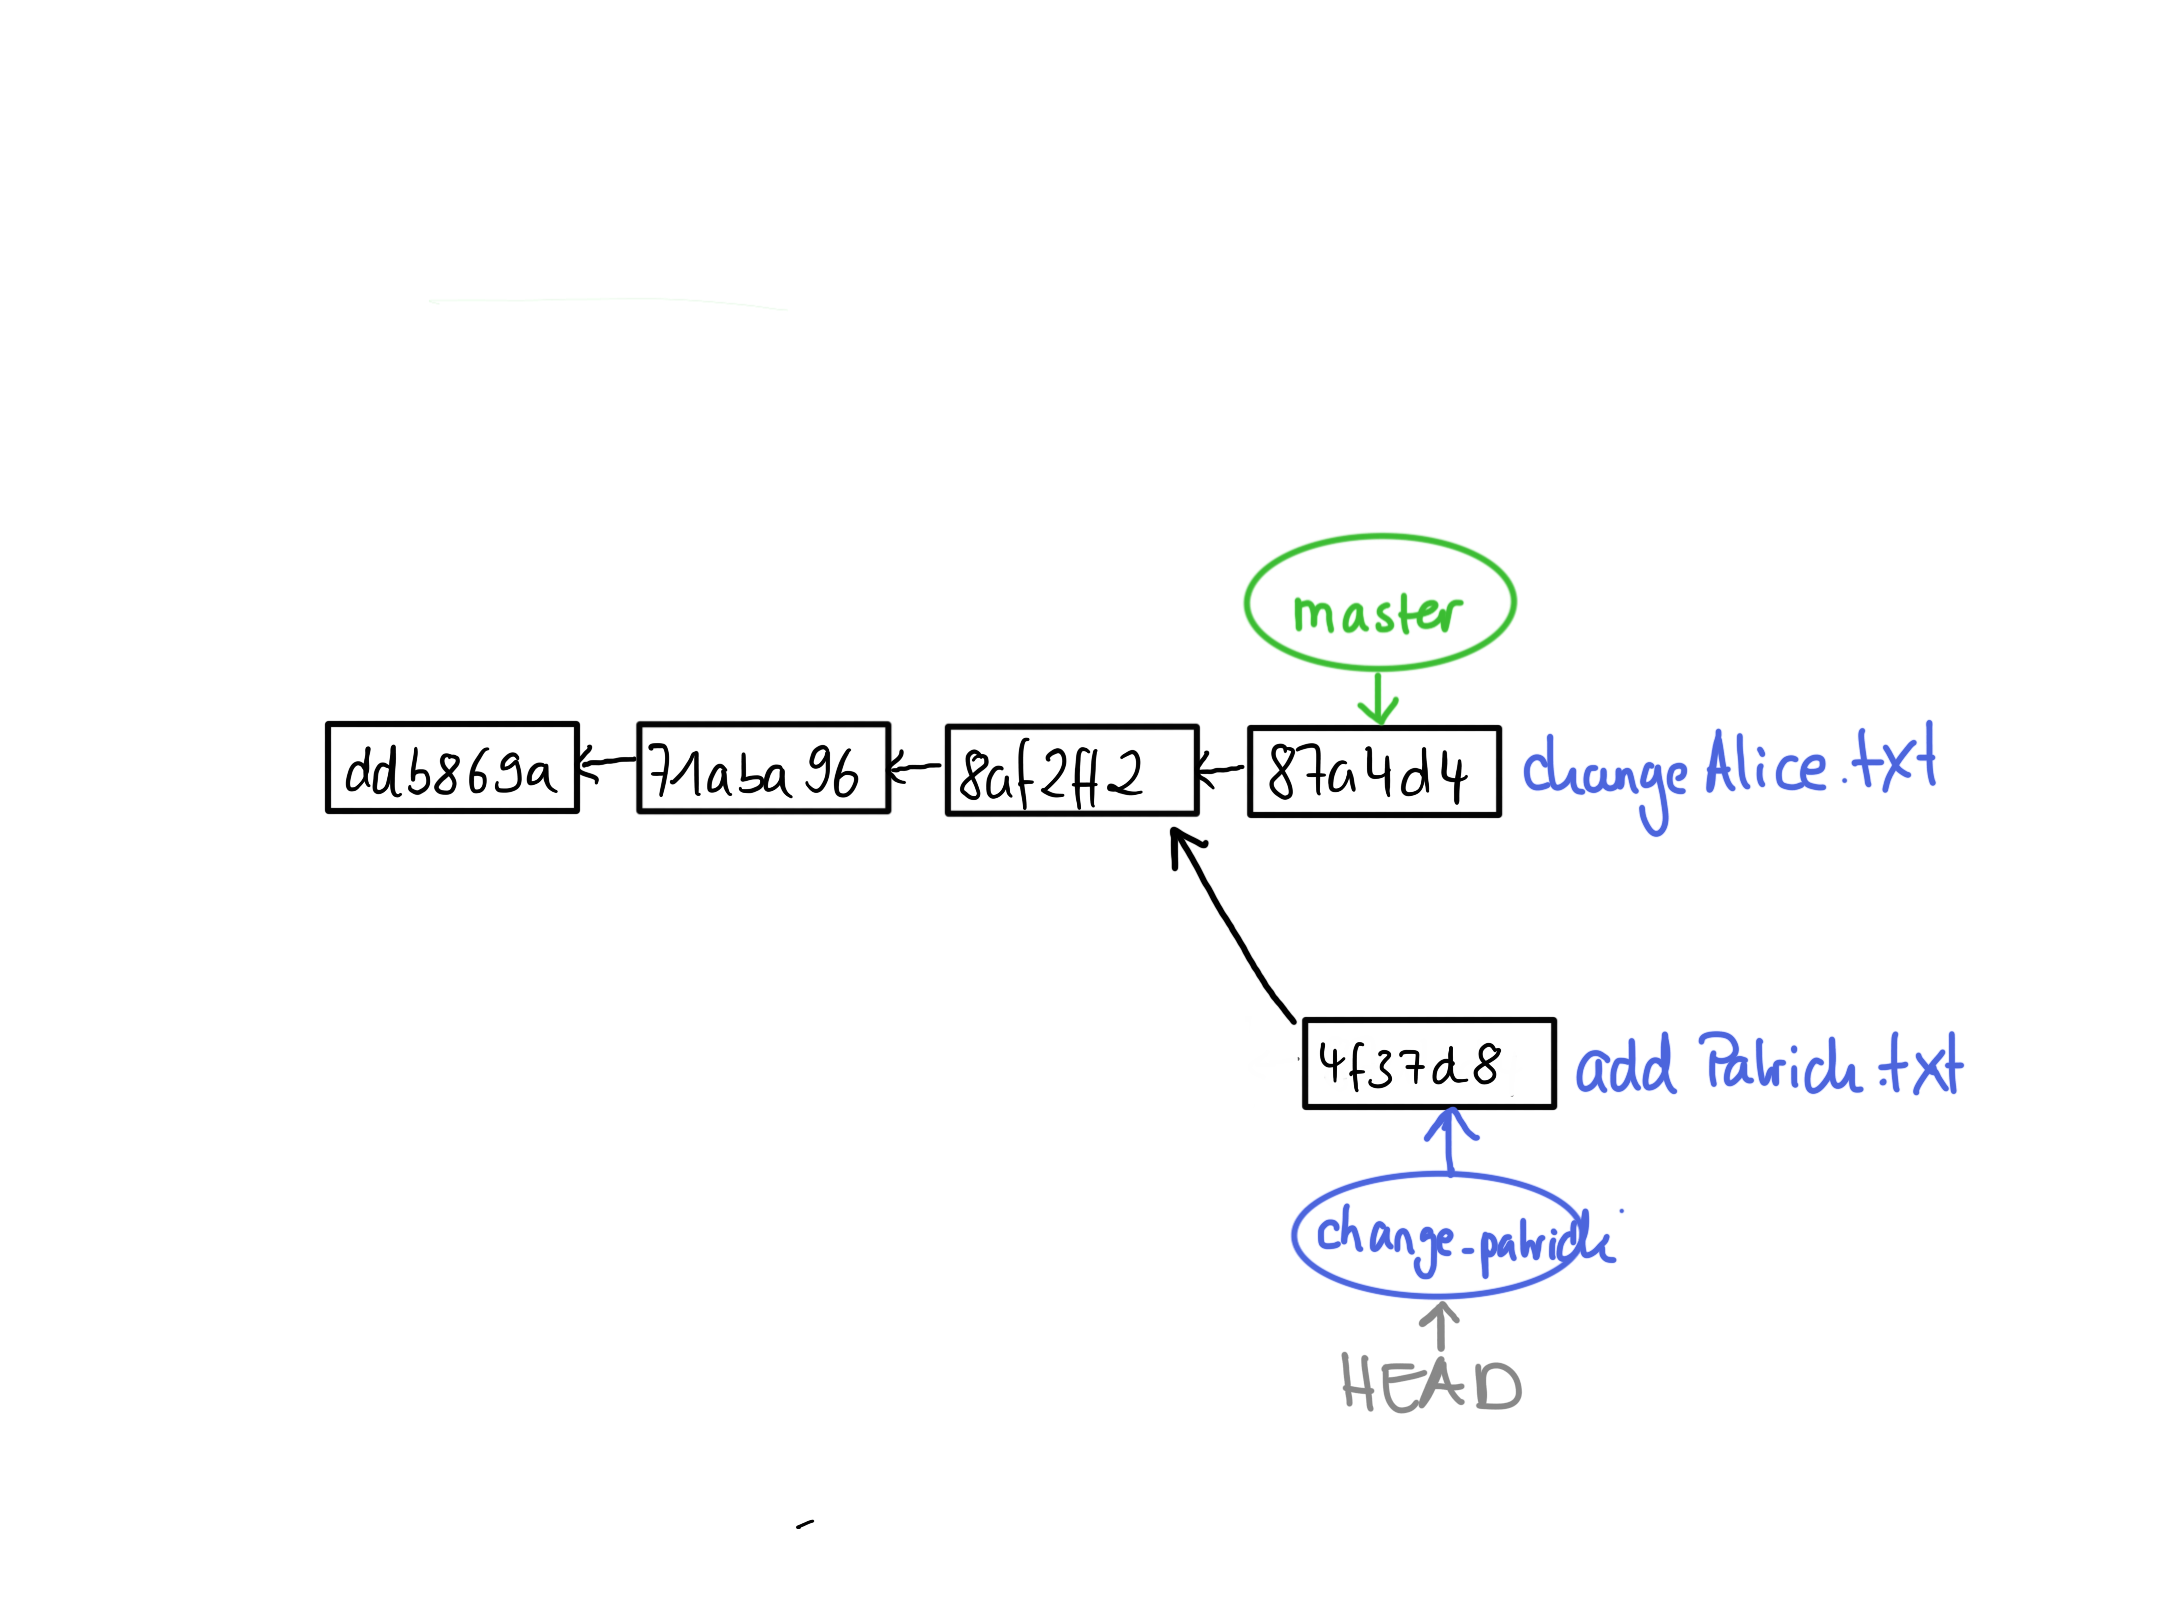 master
ddb869a
71aba96
8af2ff2
87a4d4
change Alice.txt
4f37d8
add Patrick.txt
change_patrick
HEAD